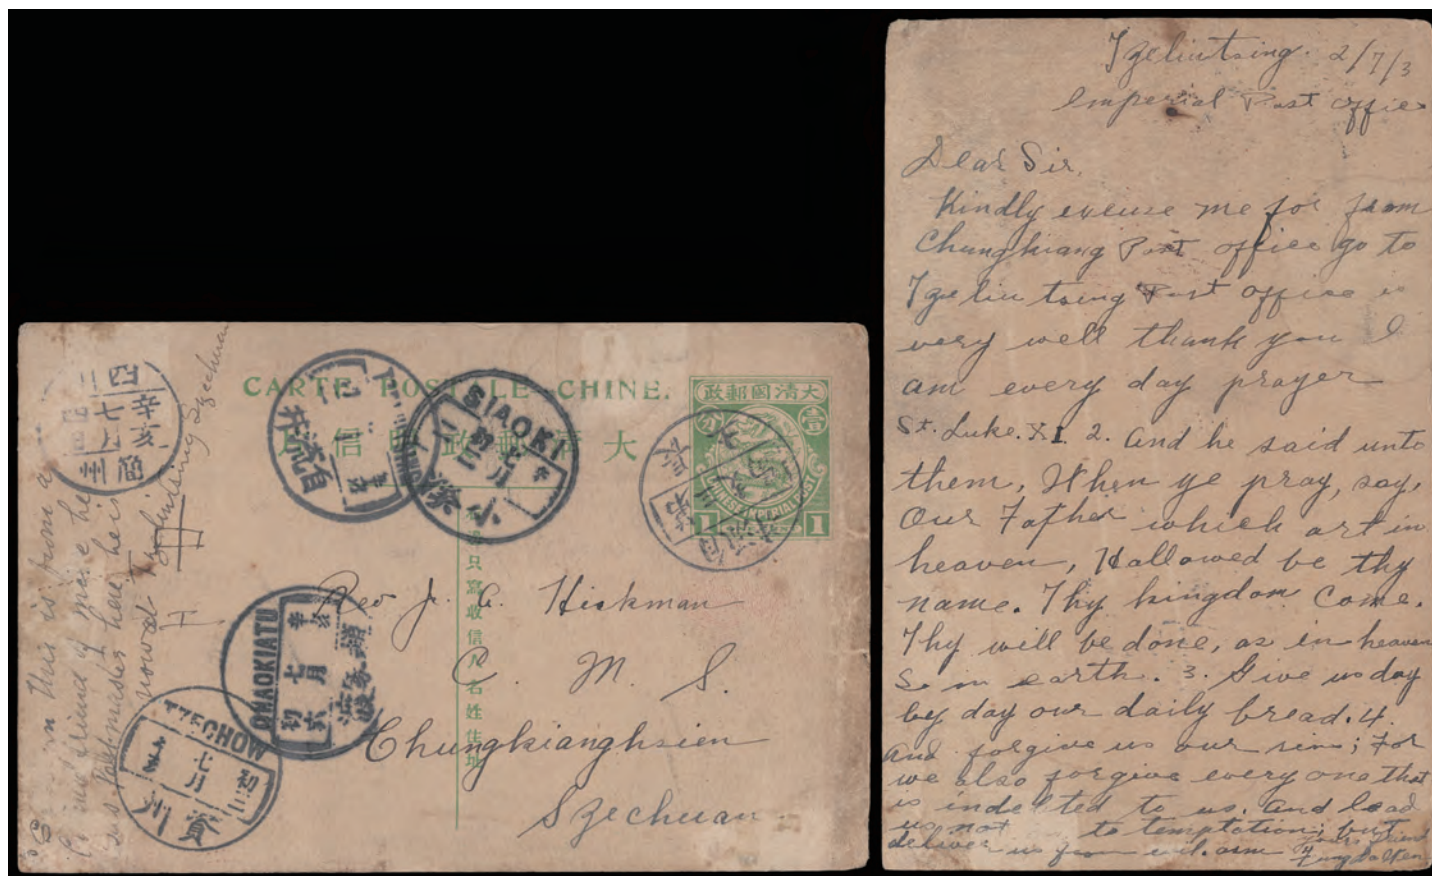 CARTE POSTALE CHINE.
大清國郵政
壹
分
CHINESE IMPERIAL POST
1 1
SIAOKI
七月
小溪
自流井
四川
辛亥
七上
簡州
OHAOKIATU
辛亥
七月
初六
TZECHOW
七月
資州
只寫收信人名姓住址
Rev J. A. Hickman
C. M. S.
Chungkianghsien
Szechuan
This is from a
friend of mine he
was Postmaster here he is
now at Tzeliutsing Szechuan
Tzeliutsing. 2/7/3
Imperial Post office
Dear Sir,
Kindly excuse me for from
Chungkiang Post office go to
Tzeliutsing Post office is
very well thank you I
am every day prayer
St. Luke. XI. 2. And he said unto
them, When ye pray, say,
Our Father which art in
heaven, Hallowed be thy
name. Thy kingdom come.
Thy will be done, as in heaven
So in earth. 3. Give us day
by day our daily bread. 4.
And forgive us our sins; For
we also forgive every one that
is indebted to us. And lead
us not to temptation; but
deliver us from evil.
yours friend